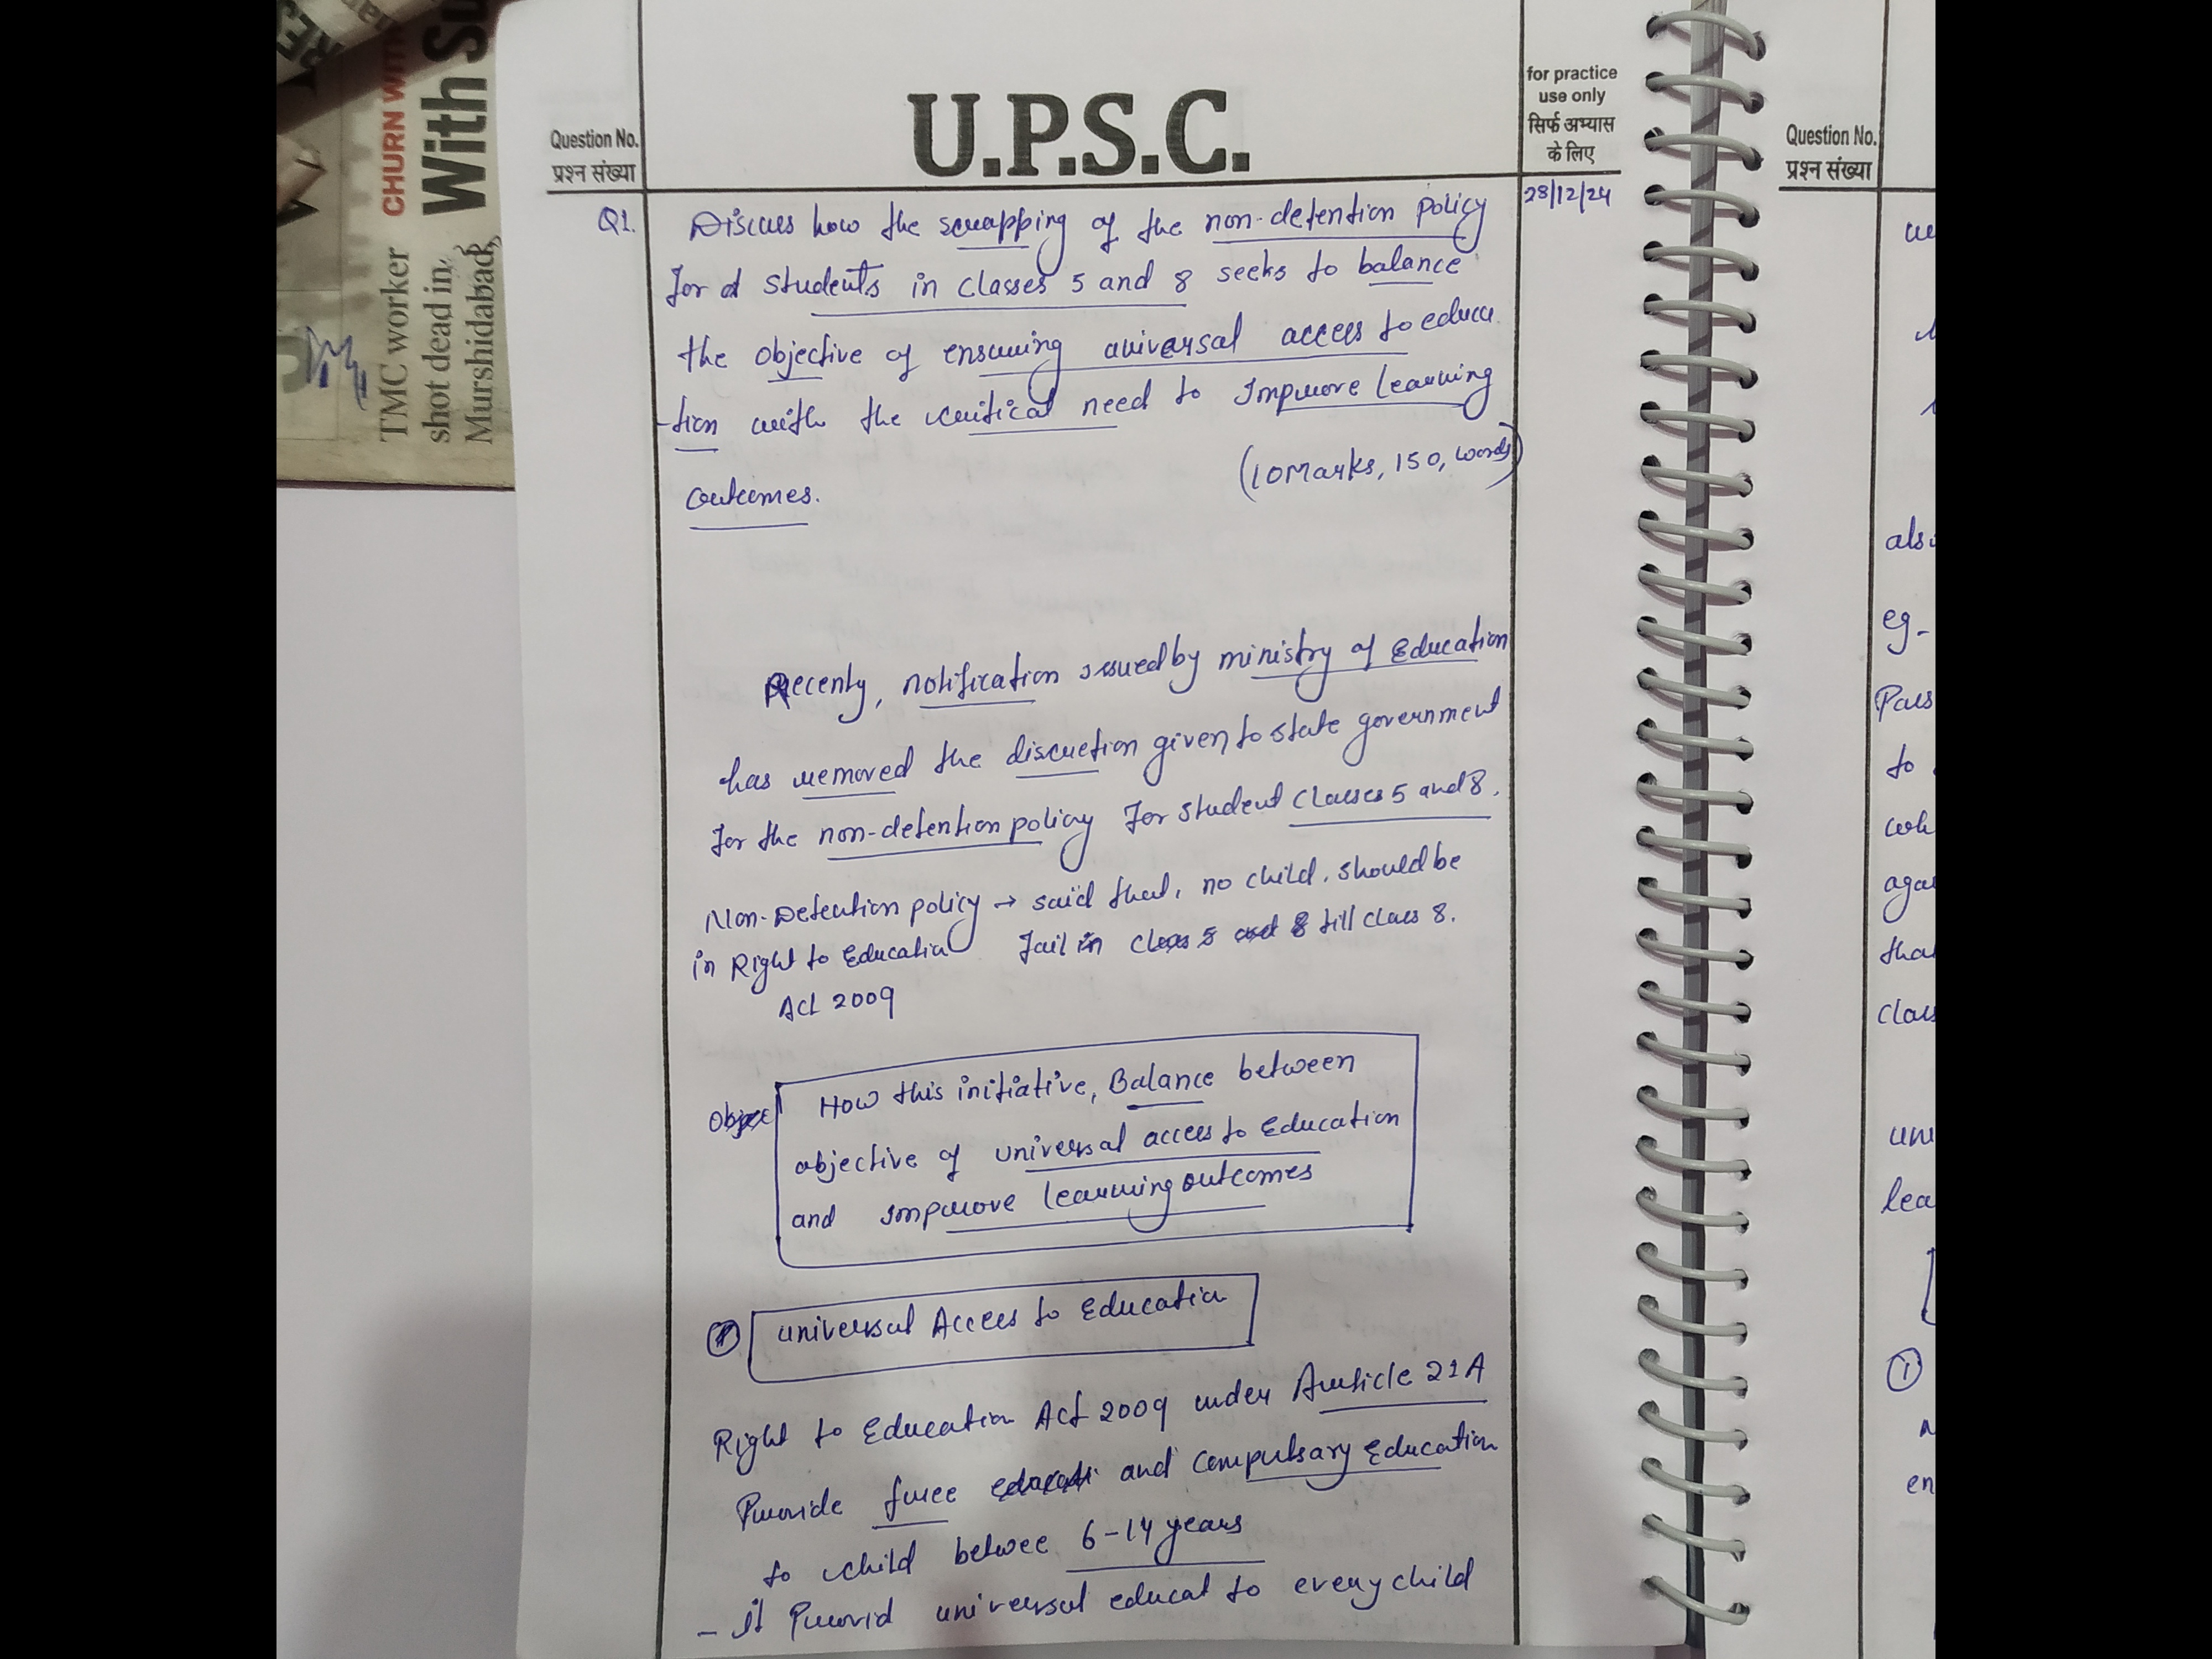 RES
CHURN WITH
With Su
TMC worker
shot dead in
Murshidabad
Question No.
प्रश्न संख्या
U.P.S.C.
for practice
use only
सिर्फ अभ्यास
के लिए
28/12/24
Q1. Discuss how the scrapping of the non-detention policy
for students in classes 5 and 8 seeks to balance
the objective of ensuring universal access to educa
-tion with the critical need to improve learning
outcomes.
(10 Marks, 150, words)
Recenly, notification issued by ministry of Education
has removed the discretion given to state government
for the non-detention policy for student classes 5 and 8.
Non-Detention policy → said that, no child, should be
in Right to Education fail in till class 8.
Act 2009
How this initiative, Balance between
objective of universal access to Education
and improve learning outcomes
universal Access to Education
Right to Education Act 2009 under Article 21A
Provide free and compulsary Education
to child betwee 6-14 years
- it Provid universal educat to every child
Question No.
प्रश्न संख्या
eg-
to
①